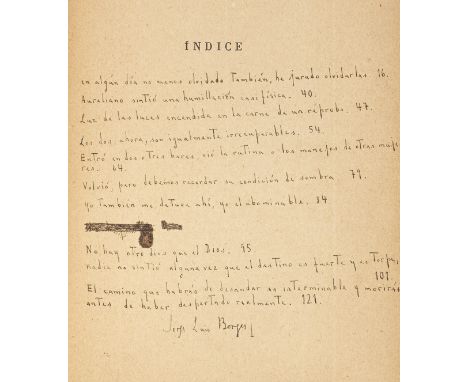 ÍNDICE
en algún día no menos olvidado también, he jurado olvidarlas 16.
Aureliano sintió una humillación casi física. 40.
Luz de las luces encendida en la carne de un réprobo. 47.
Los dos, ahora, son igualmente irrecuperables. 54.
Entró en dos o tres bares, vió la rutina o los manejos de otras muje
res. 64.
Volvió, pero debemos recordar su condición de sombra. 79.
yo también me detuve ahí, yo el abominable. 84
No hay otro dios que el Dios. 95
nadie no sintió alguna vez que el destino es fuerte y es torpe,
101.
El camino que habrás de desandar es interminable y morirás
antes de haber despertado realmente. 121.
Jorge Luis Borges